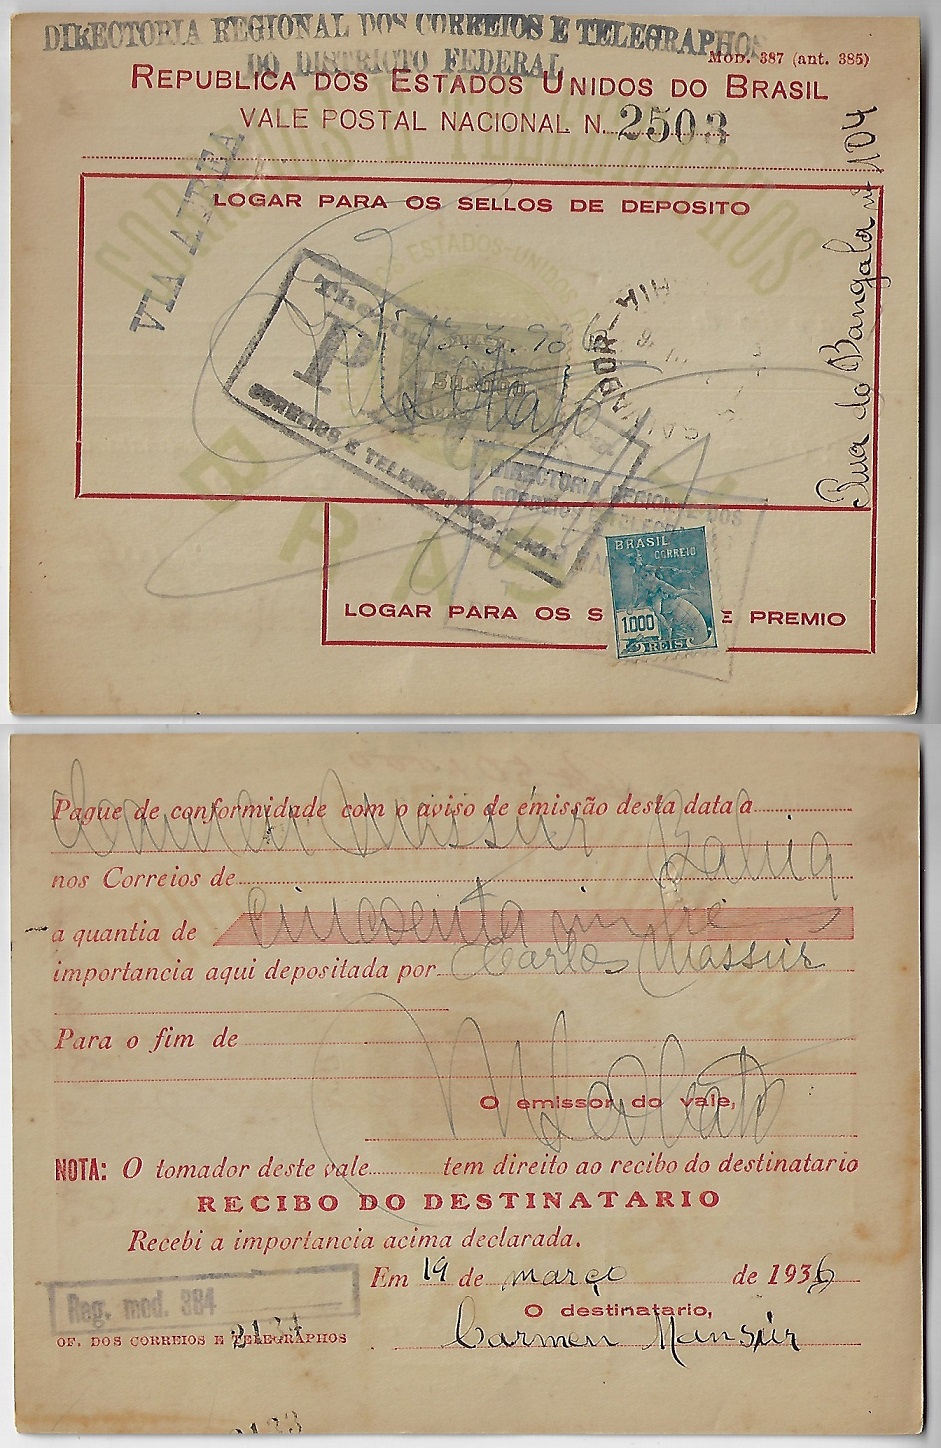 DIRECTORIA REGIONAL DOS CORREIOS E TELEGRAPHOS
DO DISTRICTO FEDERAL
MOD. 387 (ant. 385)
REPUBLICA DOS ESTADOS UNIDOS DO BRASIL
VALE POSTAL NACIONAL N. 2503
VIA AEREA
LOGAR PARA OS SELLOS DE DEPOSITO
Rua do Bangala nº 104
P
CORREIOS E TELEGRAPHOS
DIRECTORIA REGIONAL DOS
CORREIOS E TELEGR
BRASIL
CORREIO
1.000
REIS
LOGAR PARA OS S E PREMIO
CORREIOS E TELEGRAPHOS
ESTADOS-UNIDOS
BRASIL
Pague de conformidade com o aviso de emissão desta data a
Carmen Massur Bahia
nos Correios de
a quantia de cincoenta mil reis
importancia aqui depositada por Carlos Massur
Para o fim de
O emissor do vale,
NOTA: O tomador deste vale tem direito ao recibo do destinatario
RECIBO DO DESTINATARIO
Recebi a importancia acima declarada.
Em 19 de março de 1936
O destinatario,
Carmen Mansur
Reg. mod. 384
OF. DOS CORREIOS E TELEGRAPHOS